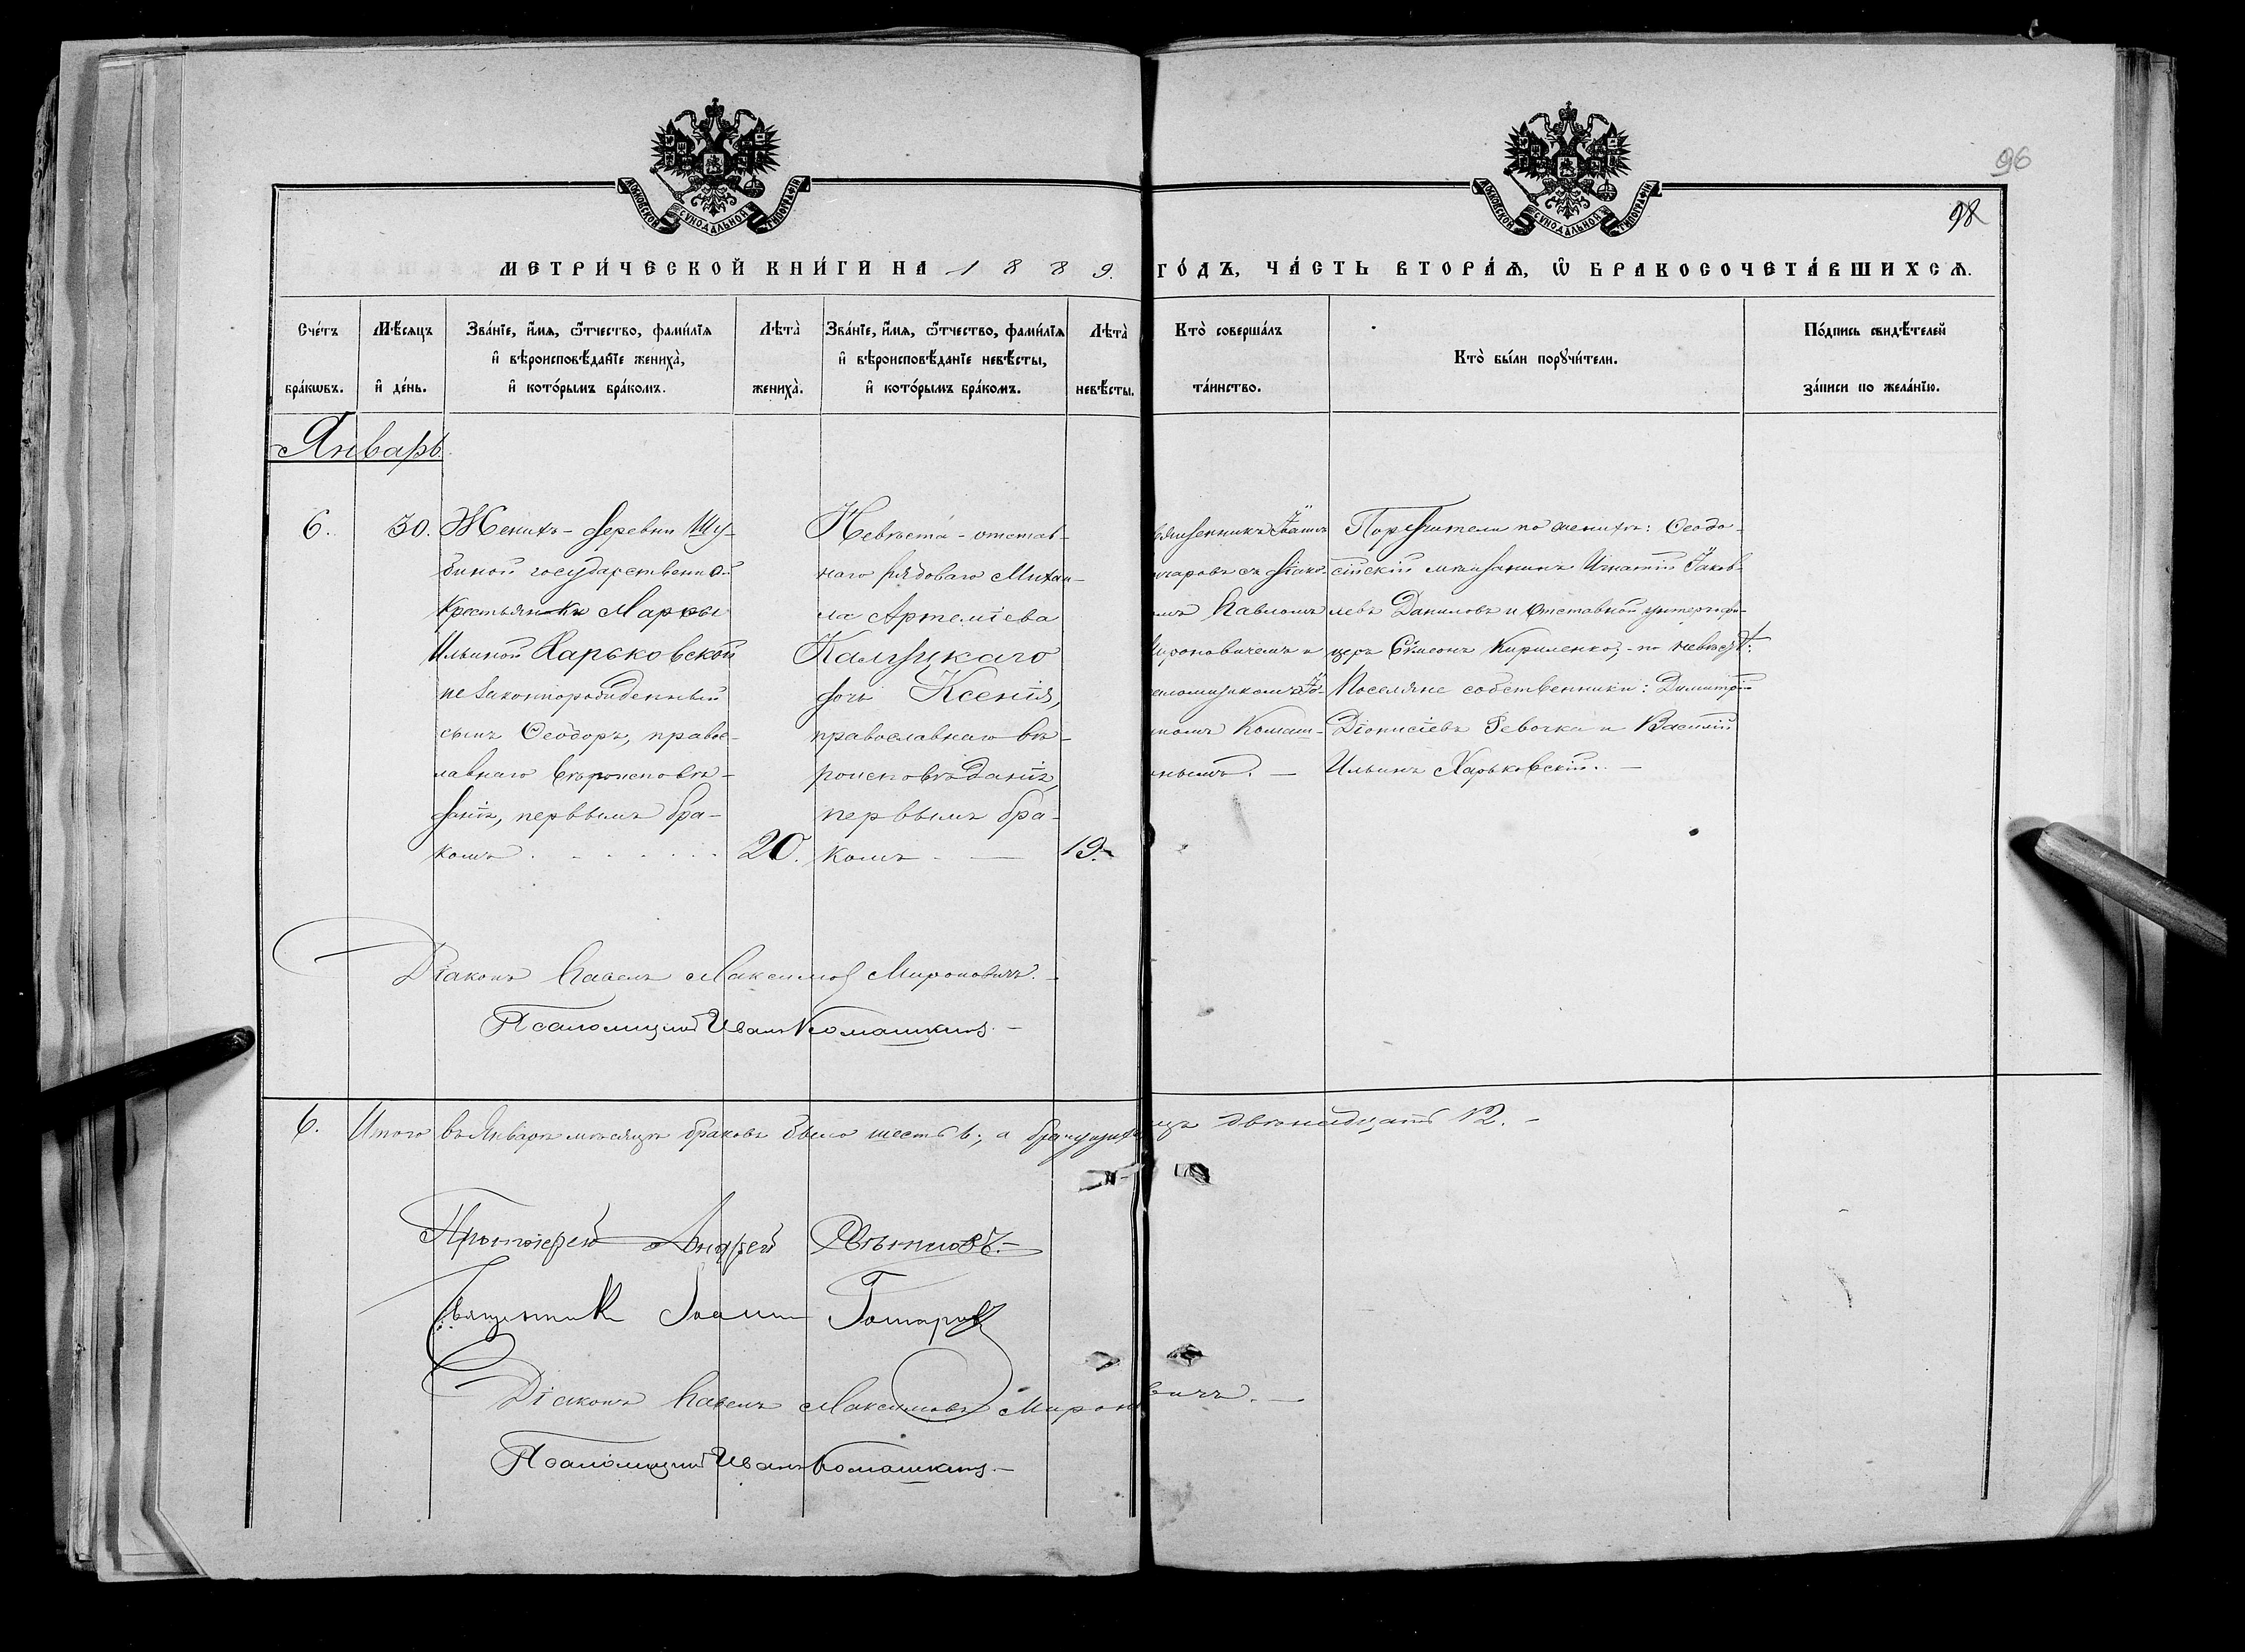 МОСКОВСКОЙ СѴНОДАЛЬНОЙ ТИПОГРАФІИ
МОСКОВСКОЙ СѴНОДАЛЬНОЙ ТИПОГРАФІИ
96
98
МЕТРИ́ЧЕСКОЙ КНИ́ГИ НА 1889. ГО́ДЪ, ЧА́СТЬ ВТОРА́Ѧ, Ѿ БРАКОСОЧЕТА́ВШИХСѦ.
Сче́тъ бра́кѡвъ.
Мѣ́сѧцъ и҆ де́нь.
Зва́нїе, и҆́мѧ, ѻ҆́тчество, фами́лїѧ
и҆ вѣроисповѣ́данїе жениха̀,
и҆ кото́рымъ бра́комъ.
Лѣта̀ жениха̀.
Зва́нїе, и҆́мѧ, ѻ҆́тчество, фами́лїѧ
и҆ вѣроисповѣ́данїе невѣ́сты,
и҆ кото́рымъ бра́комъ.
Лѣта̀ невѣ́сты.
Кто̀ соверша́лъ та́инство.
Кто̀ бы́ли порꙋчи́тели.
По́дпись свидѣ́телей за́писи по жела́нїю.
Январь
6.
30.
Женихъ - деревни Шу-
биной государственной
крестьянки Марѳы
Ильиной Харьковской
незаконнорожденный
сынъ Ѳеодоръ, правос-
лавнаго вѣроисповѣ-
данія, первымъ бра-
комъ
20.
Невѣста - отстав-
наго рядоваго Михаи-
ла Артеміева
Калуцкаго
дочь Ксенія,
православнаго вѣ-
роисповѣданія,
первымъ бра-
комъ
19.
вященникъ Іоаннъ
нчаровъ съ діако-
омъ Павломъ
Мироновичемъ и
саломщикомъ Іо-
номъ Комаш-
нымъ.
Поручители по женихѣ: Ѳеодо-
сійскій мѣщанинъ Игнатій Яков-
левъ Даниловъ и отставной унтеръ-офи-
церъ Сѵмеонъ Кириленко; - по невѣстѣ:
Поселяне собственники: Димитрій
Діонисіевъ Ревочка и Василій
Ильинъ Харьковскій. -
Діаконъ Павелъ Максимовъ Мироновичъ. -
Псаломщикъ Иванъ Комашкинъ. -
6. Итого въ Январѣ мѣсяцѣ браковъ было шесть 6; а брачущихся лицъ двѣнадцать 12. -
Протоіерей Андрей
Священникъ Іоаннъ Гончаровъ
Діаконъ Павелъ Максимовъ Мироновичъ. -
Псаломщикъ Иванъ Комашкинъ. -